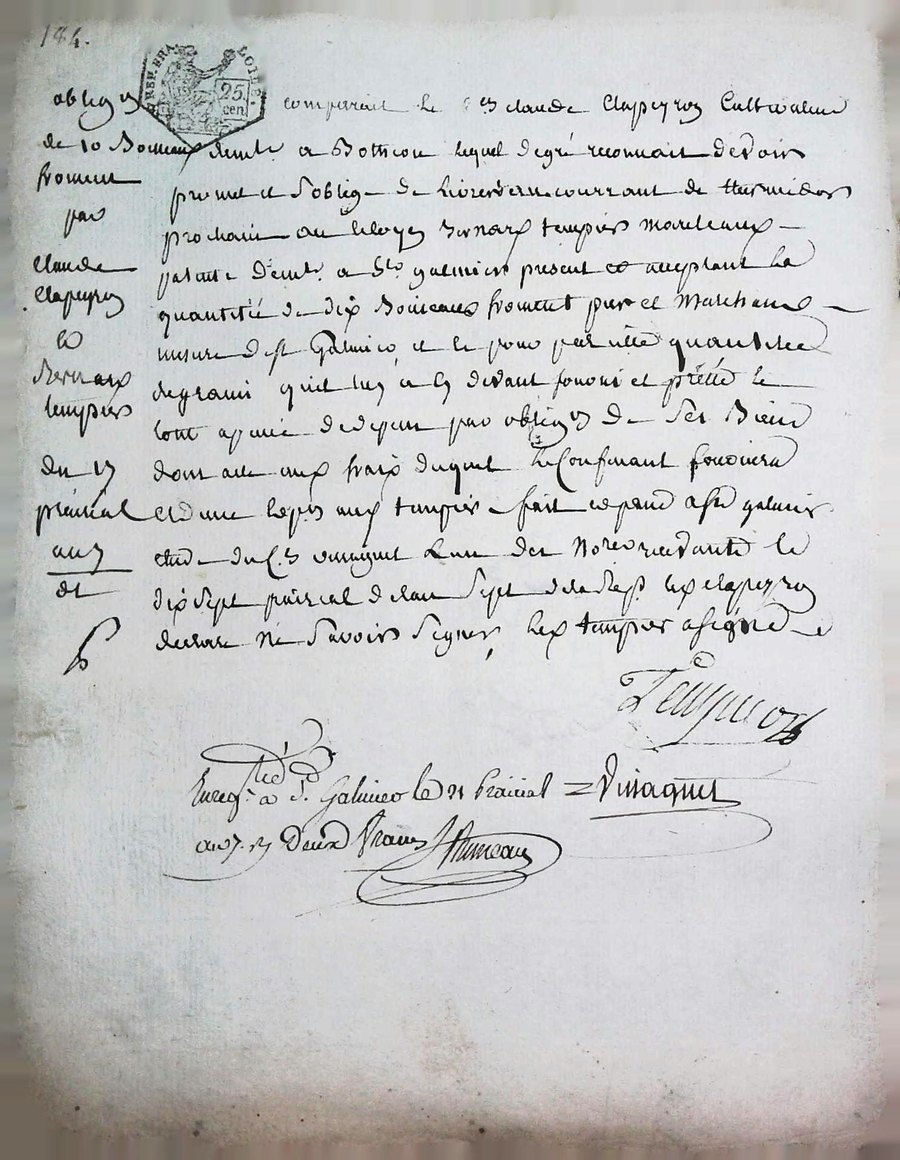 184.
REP. FRA
LOIRE
25
cen.
obligon
de 10 Boiceaux
froment
par
Claude
Clapeyron
a
Bernard
tempier
du 17
prairial
an 7
dt
comparait le Cen claude Clapeyron Cultivateur
demt a Botheon lequel degré reconnait devoir
promet et s'oblige de livrer dans le courrant de thermidor
prochain au citoyen Bernard tempier
patenté demt a St galmier present et acceptant la
quantité de dix Boiceaux froment pur et Marchand
mesure de St Galmier, et ce pour pareille quantitée
degrains qu'il luy a cy devant fourni et prétté le
tout a peine de depens par obligon de ses Biens
dont acte aux frais duquel le Confessant fournira
expedn aud tempier fait et passé a St galmier
etude du Cen vinagnet l'un des Nores recevant le
dix sept prairial de l'an sept de la Rep. led clapeyron
declare ne savoir signer, led tempier a signé
Tempier
Enregt. a St. Galmier le 21 Prairial
an 7. R Deux Francs
Vinagnet